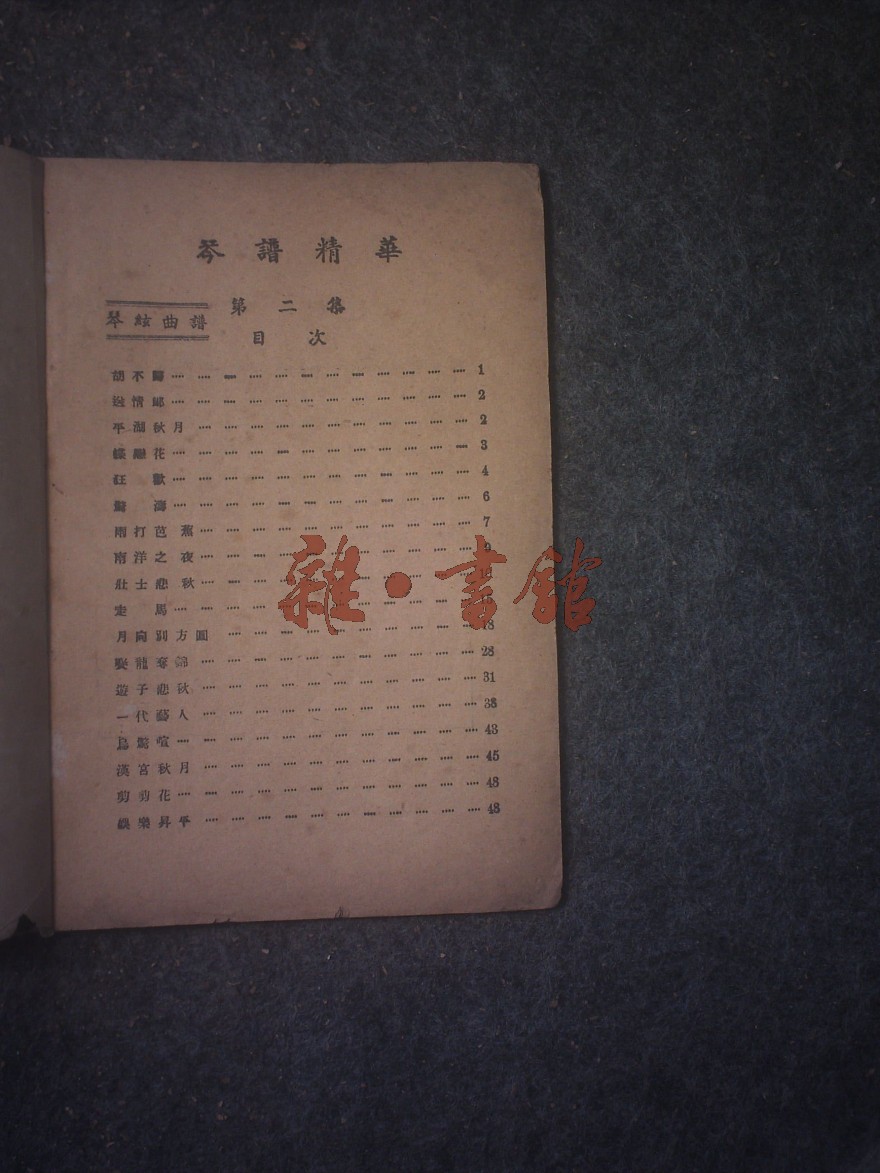 琴譜精華
第二集
琴絃曲譜
目次
胡不歸 1
送情郎 2
平湖秋月 2
蝶戀花 3
狂歡 4
驚濤 6
雨打芭蕉 7
南洋之夜 9
壯士悲秋
走馬
月向別方圓 18
雙龍奪錦 28
遊子悲秋 31
一代藝人 38
鳥驚喧 43
漢宮秋月 45
剪剪花 48
娛樂昇平 48
雜·書館